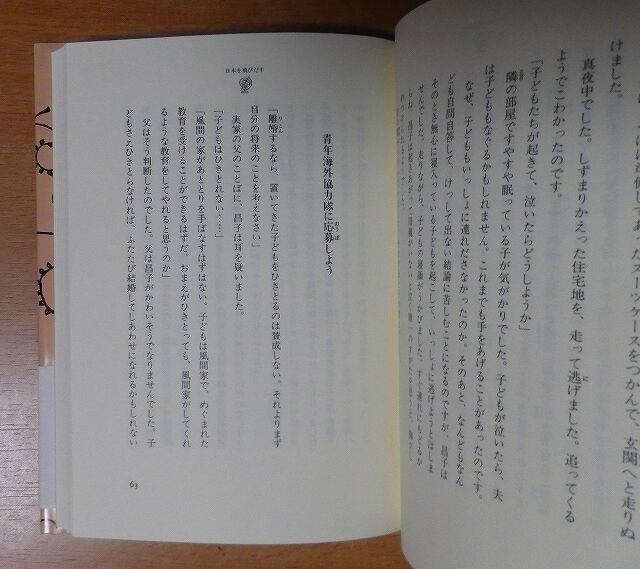 けました。
真夜中でした。しずまりかえった住宅地を、走って逃げました。追ってくる
ようでこわかったのです。
「子どもたちが起きて、泣いたらどうしようか」
隣の部屋ですやすや眠っている子が気がかりでした。子どもが泣いたら、夫
は子どももなぐるかもしれません。これまでも手をあげることがあったのです。
なぜ、子どももいっしょに連れださなかったのか。そのあと、なんどもなん
ども自問自答して、けっして出ない結論に苦しむことになるのですが、昌子は
そのとき無心に寝入っている子どもを起こして、いっしょに逃げようとはしま
せんでした。走りながら、子どもの寝顔がうかびました。
日本を飛びだす
青年海外協力隊に応募しよう
「離婚するなら、置いてきた子どもをひきとるのは賛成しない。それよりまず
自分の将来のことを考えなさい」
実家の父のことばに、昌子は耳を疑いました。
「子どもはひきとれない……」
「風間の家があととりを手ばなすはずはない。子どもは風間家で、めぐまれた
教育を受けることができるはずだ。おまえがひきとっても、風間家がしてくれ
るような教育をしてやれると思うのか」
父はそう判断したのでした。父は昌子がかわいそうでなりませんでした。子
どもさえひきとらなければ、ふたたび結婚してしあわせになれるかもしれない
63